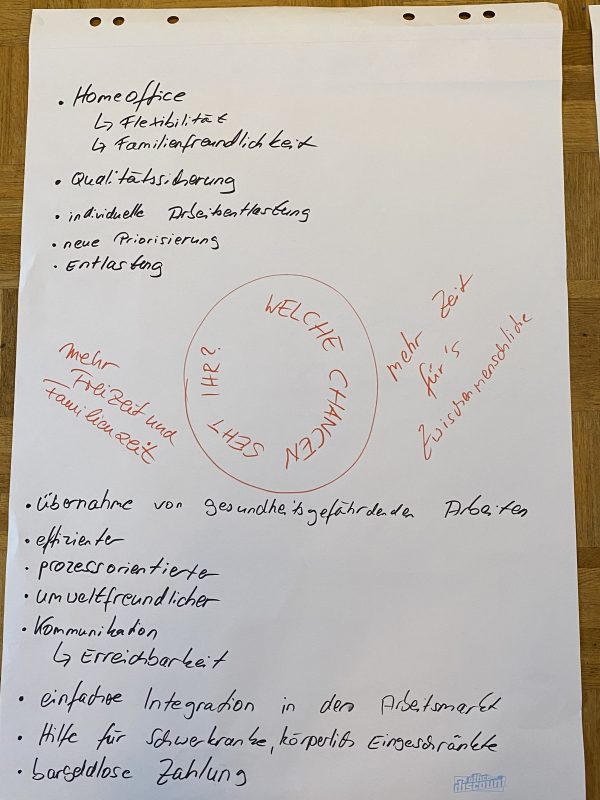 • Homeoffice
↳ Flexibilität
↳ Familienfreundlichkeit
• Qualitätssicherung
• individuelle Arbeitsentlastung
• neue Priorisierung
• Entlastung
WELCHE CHANCEN SEHT IHR?
mehr
Freizeit und
Familienzeit
mehr Zeit
für's
Zwischenmenschliche
• Übernahme von gesundheitsgefährdenden Arbeiten
• effizienter
• prozessorientierter
• umweltfreundlicher
• Kommunikation
↳ Erreichbarkeit
• einfache Integration in den Arbeitsmarkt
• Hilfe für Schwerkranke, körperlich Eingeschränkte
• bargeldlose Zahlung
office
discount